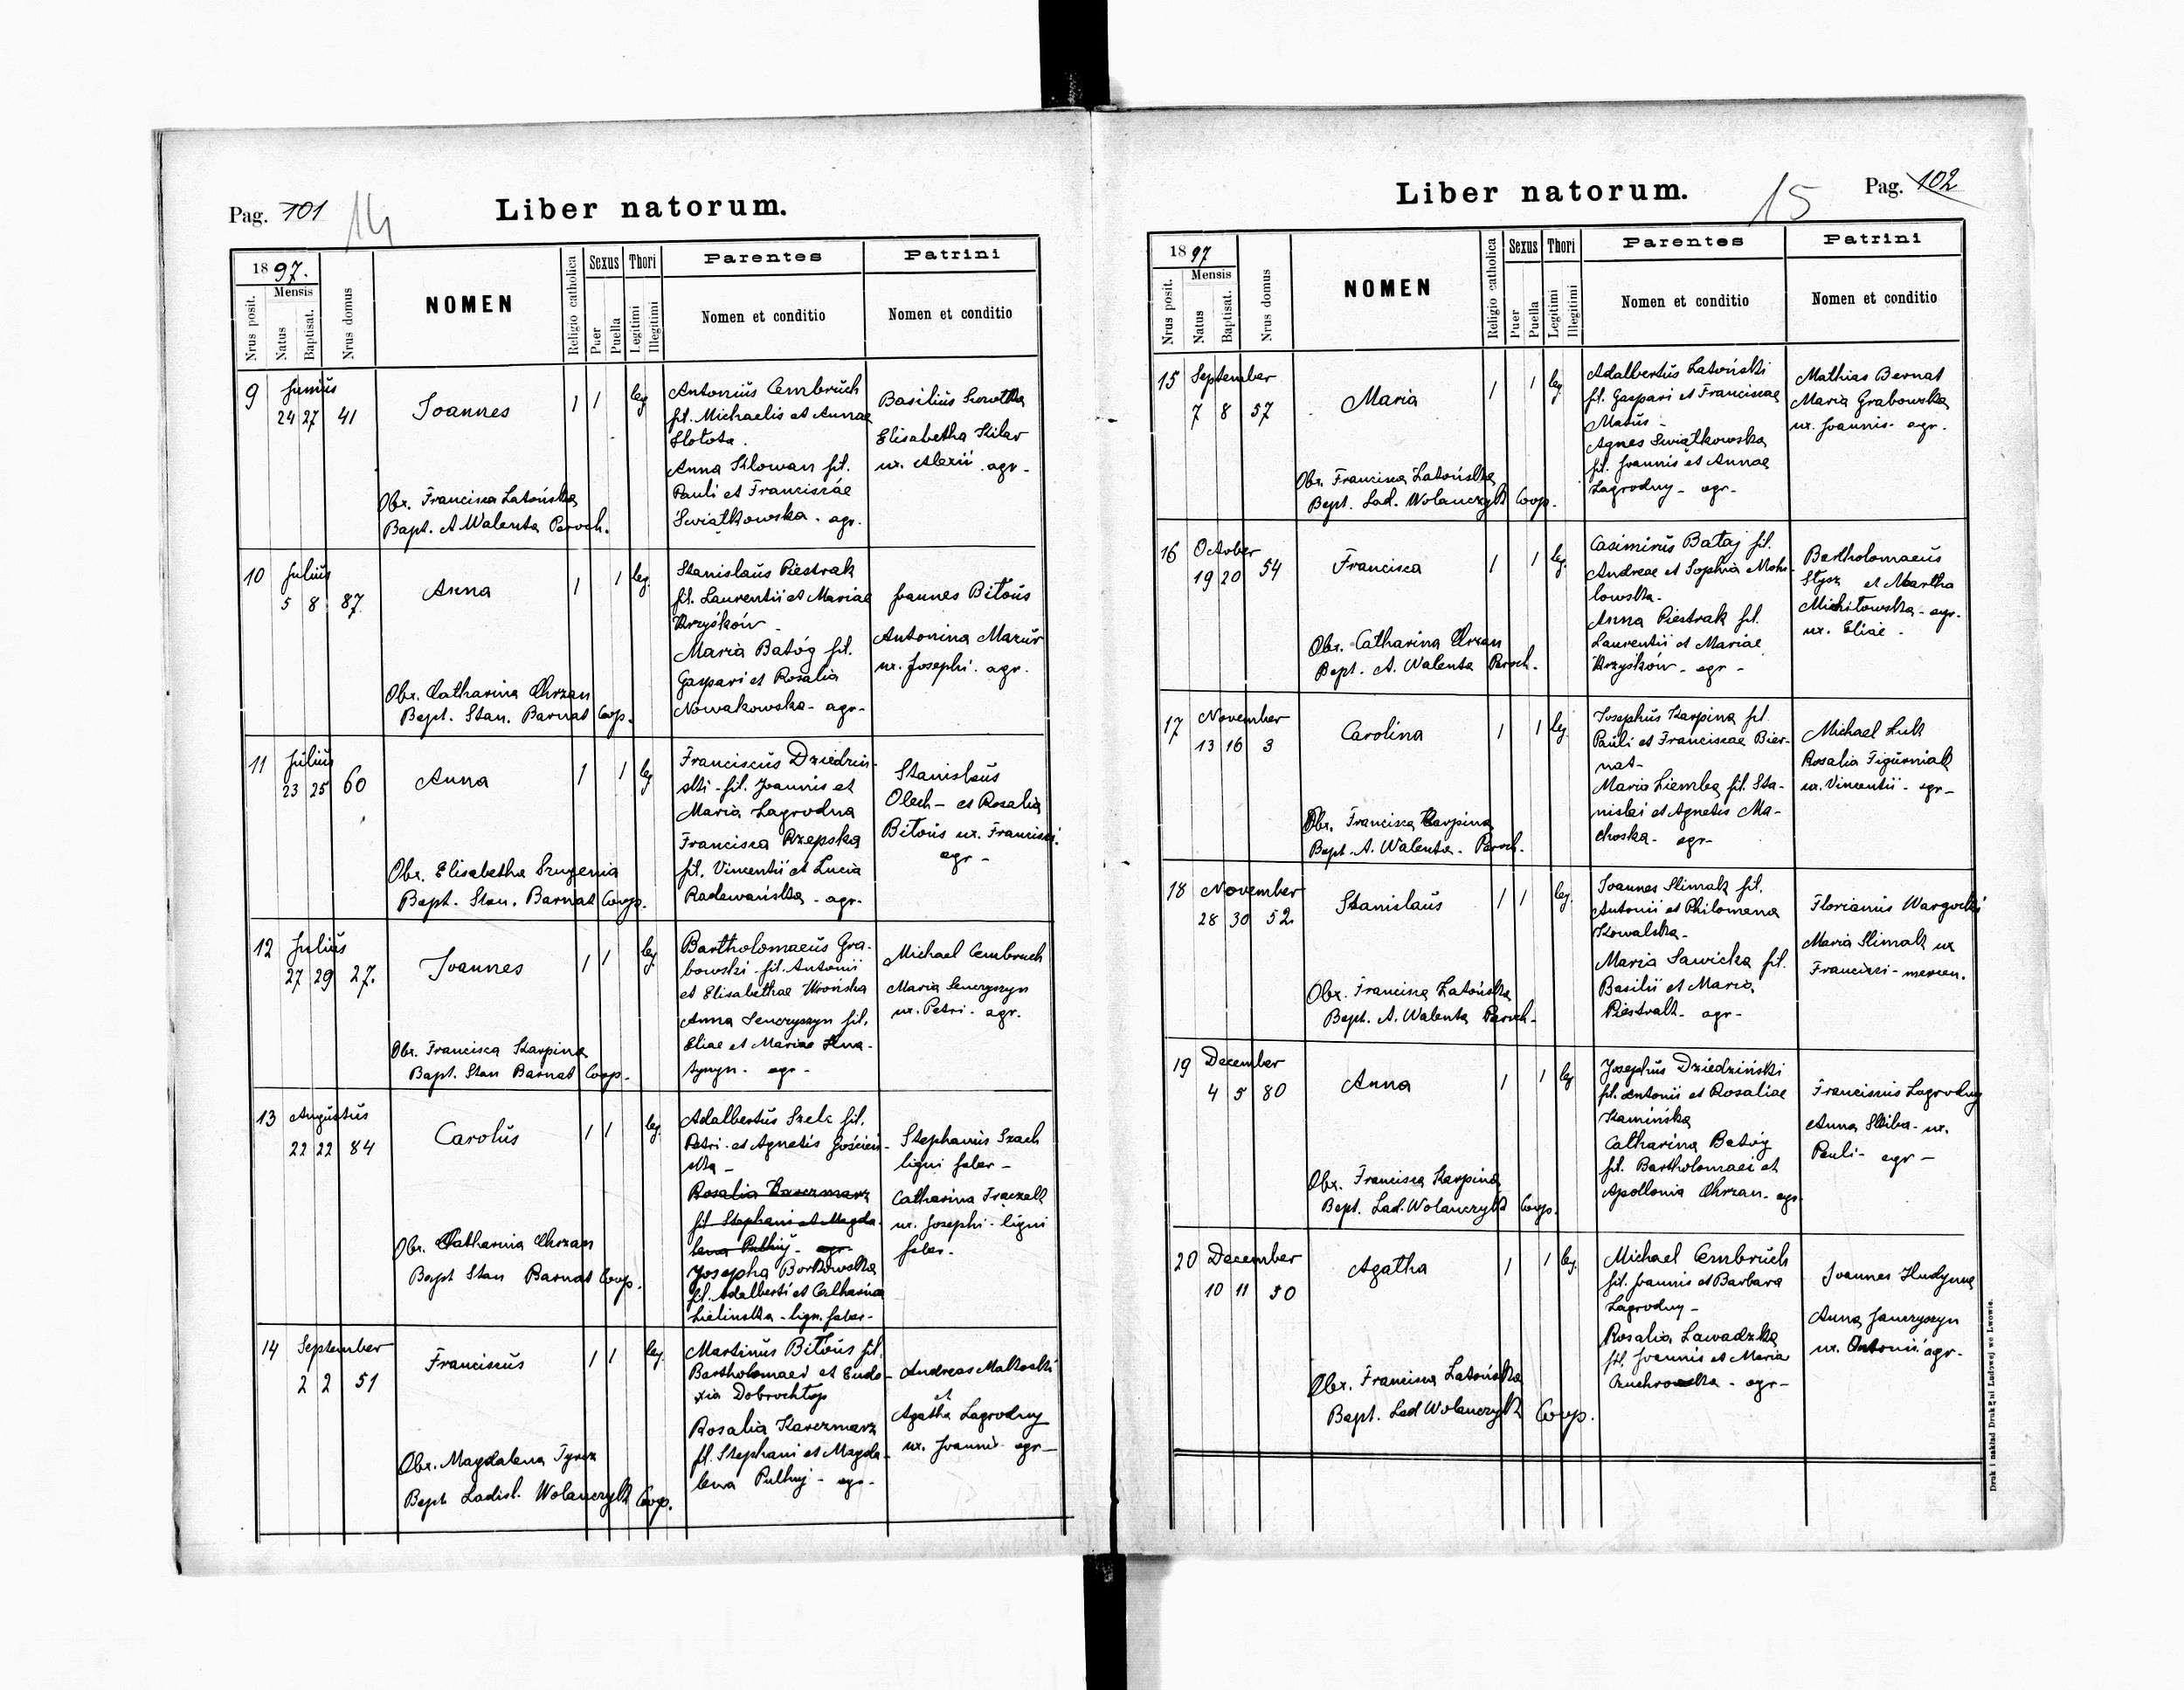 Pag. 101 14
Liber natorum.
1897.
Nrus posit.
Mensis
Natus
Baptisat.
Nrus domus
NOMEN
Religio catholica
Sexus
Puer
Puella
Thori
Legitimi
Illegitimi
Parentes
Nomen et conditio
Patrini
Nomen et conditio
9 Junius
24 27 41
Joannes
1 1 leg
Obx. Francisca Latońska
Bapt. A Walenta Paroch.
Antonius Cembruch
fil. Michaelis et Annae
Slotota.
Anna Klowan fil.
Pauli et Franciscae
Świątkowska. agr.
Basilius
Elisabetha Kilar
ux. Alexii agr-
10 Julius
5 8 87.
Anna
1 1 leg
Obx. Catharina Chrzan
Bapt. Stan. Barnat Coop.
Stanislaus Piestrak
fil. Laurentii et Mariae
Krzyśków -
Maria Batóg fil.
Gaspari et Rosalia
Nowakowska- agr-
Joannes Bitous
Antonina Mazur
ux. Josephi. agr.
11 Julius
23 25 60
Anna
1 1 leg
Obx. Elisabetha
Bapt. Stan. Barnat Coop.
Franciscus Dziedzin-
ski - fil. Joannis et
Maria Zagrodna
Francisca Rzepska
fil. Vincentii et Lucia
Radawańska - agr.
Stanislaus
Olech - et Rosalia
Bitous ux. Francisci.
agr -
12 Julius
27 29 27.
Joannes
1 1 leg
Obx. Francisca Karpina
Bapt. Stan Barnat Coop.
Bartholomaeus Gra-
bowski - fil. Antonii
et Elisabethae Wrońska
Anna Senczyszyn fil.
Eliae et Mariae Hna-
tyszyn. agr -
Michael Cembruch
Maria Senczyszyn
ux. Petri. agr.
13 Augustus
22 22 84
Carolus
1 1 leg
Obx. Catharina Chrzan
Bapt Stan Barnat Coop.
Adalbertus Szelc fil.
Petri et Agnetis Gościń-
ska -
Rosalia Karczmarz
fil Stephani et Magda-
lena Pulkuj - agr.
Josepha Borkowska
fil. Adalberti et Catharina
Zielinska - lign. faber -
Stephanus Szach
ligni faber -
Catharina Traczek
ux. Josephi - ligni
faber.
14 September
2 2 51
Franciscus
1 1 leg
Obx. Magdalena
Bapt Ladisl. Wolanczyk Coop.
Martinus Bitous fil.
Bartholomaei et Eudo-
xia Dobrochtop
Rosalia Karczmarz
fil. Stephani et Magda-
lena Pulkuj - agr -
Andreas Malkoski
et
Agatha Zagrodny
ux. Joannis agr -
Liber natorum.
15 Pag. 102
1897
Nrus posit.
Mensis
Natus
Baptisat.
Nrus domus
NOMEN
Religio catholica
Sexus
Puer
Puella
Thori
Legitimi
Illegitimi
Parentes
Nomen et conditio
Patrini
Nomen et conditio
15 September
7 8 57
Maria
1 1 leg
Obx. Francisca Latońska
Bapt. Lad. Wolanczyk Coop.
Adalbertus Latoński
fil. Gaspari et Franciscae
Matus -
Agnes Swiątkowska
fil. Joannis et Annae
Zagrodny - agr -
Mathias Bernat
Maria Grabowska
ux. Joannis - agr.
16 October
19 20 54
Francisca
1 1 leg.
Obx. Catharina Chrzan
Bapt. A. Walenta Paroch.
Casimirus Bataj fil.
Andreae et Sophia Moh-
lowska.
Anna Piestrak fil.
Laurentii et Mariae
Krzyśków - agr -
Bartholomaeus
Stysz et Martha
Michitowska - agr.
ux. Eliae.
17 November
13 16 3
Carolina
1 1 leg.
Obx. Francisca Karpina
Bapt. A. Walenta - Paroch.
Josephus Karpina fil.
Pauli et Franciscae Bier-
nat -
Maria Ziemba fil. Sta-
nislai et Agnetis Ma-
choska - agr-
Michael Lulk
Rosalia Figurniak
ux. Vincentii - agr -
18 November
28 30 52.
Stanislaus
1 1 leg.
Obx. Francisca Latońska
Bapt. A. Walenta Paroch -
Joannes Slimak fil.
Antonii et Philomena
Kowalska -
Maria Sawicka fil.
Basilii et Maria
Piestrak - agr -
Florianus Wargocki
Maria Slimak ux
Francisci - mercen.
19 December
4 5 80
Anna
1 1 leg
Obx. Francisca Karpina
Bapt. Lad. Wolanczyk Coop.
Josephus Dziedziński
fil. Antonii et Rosaliae
Kamińska
Catharina Batóg
fil. Bartholomaei et
Apollonia Chrzan - agr
Franciscus Zagrodny
Anna Skiba - ux.
Pauli - agr -
20 December
10 11 50
Agatha
1 1 leg.
Obx. Francisca Latońska
Bapt. Lad Wolanczyk Coop.
Michael Cembruch
fil. Joannis et Barbara
Zagrodny -
Rosalia Zawadzka
fil. Joannis et Maria
- agr -
Joannes Hudyma
Anna Janczyszyn
ux. Antonii agr -
Druk i nakład Drukarni Ludowej we Lwowie.